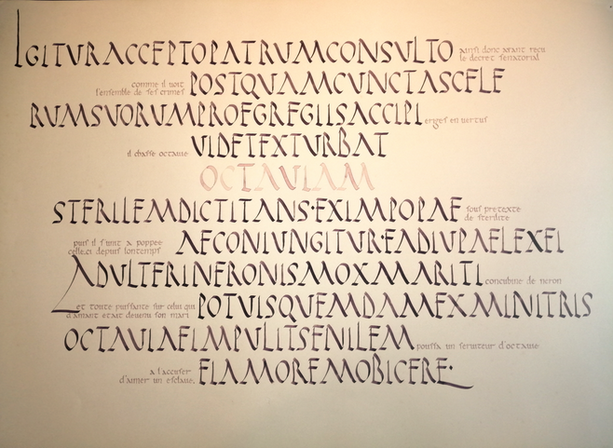 IGITURACCEPTOPATRUMCONSULTO ainsi donc ayant reçu
le decret senatorial
comme il voit
l'ensemble de ses crimes POSTQUAMCUNCTASCELE
RUMSUORUMPROEGREGIISACCIPI eriges en vertus
il chasse octavie UIDETEXTURBAT
OCTAUIAM
STERILEMDICTITANS·EXIMPOPAE sous pretexte
de sterilite
puis il s'unit a poppee
celle ci depuis lontemps AECONIUNGITUREADIUPAELEXEI
ADULTERINERONISMOXMARITI concubine de neron
et toute puissante sur celui qui
d'amant etait devenu son mari POTUISQUEMDAMEXMINITRIS
OCTAUIAEIMPULITSENILEM poussa un serviteur d'octavie
a l'accuser
d'aimer un esclave. EIAMOREMOBICERE·